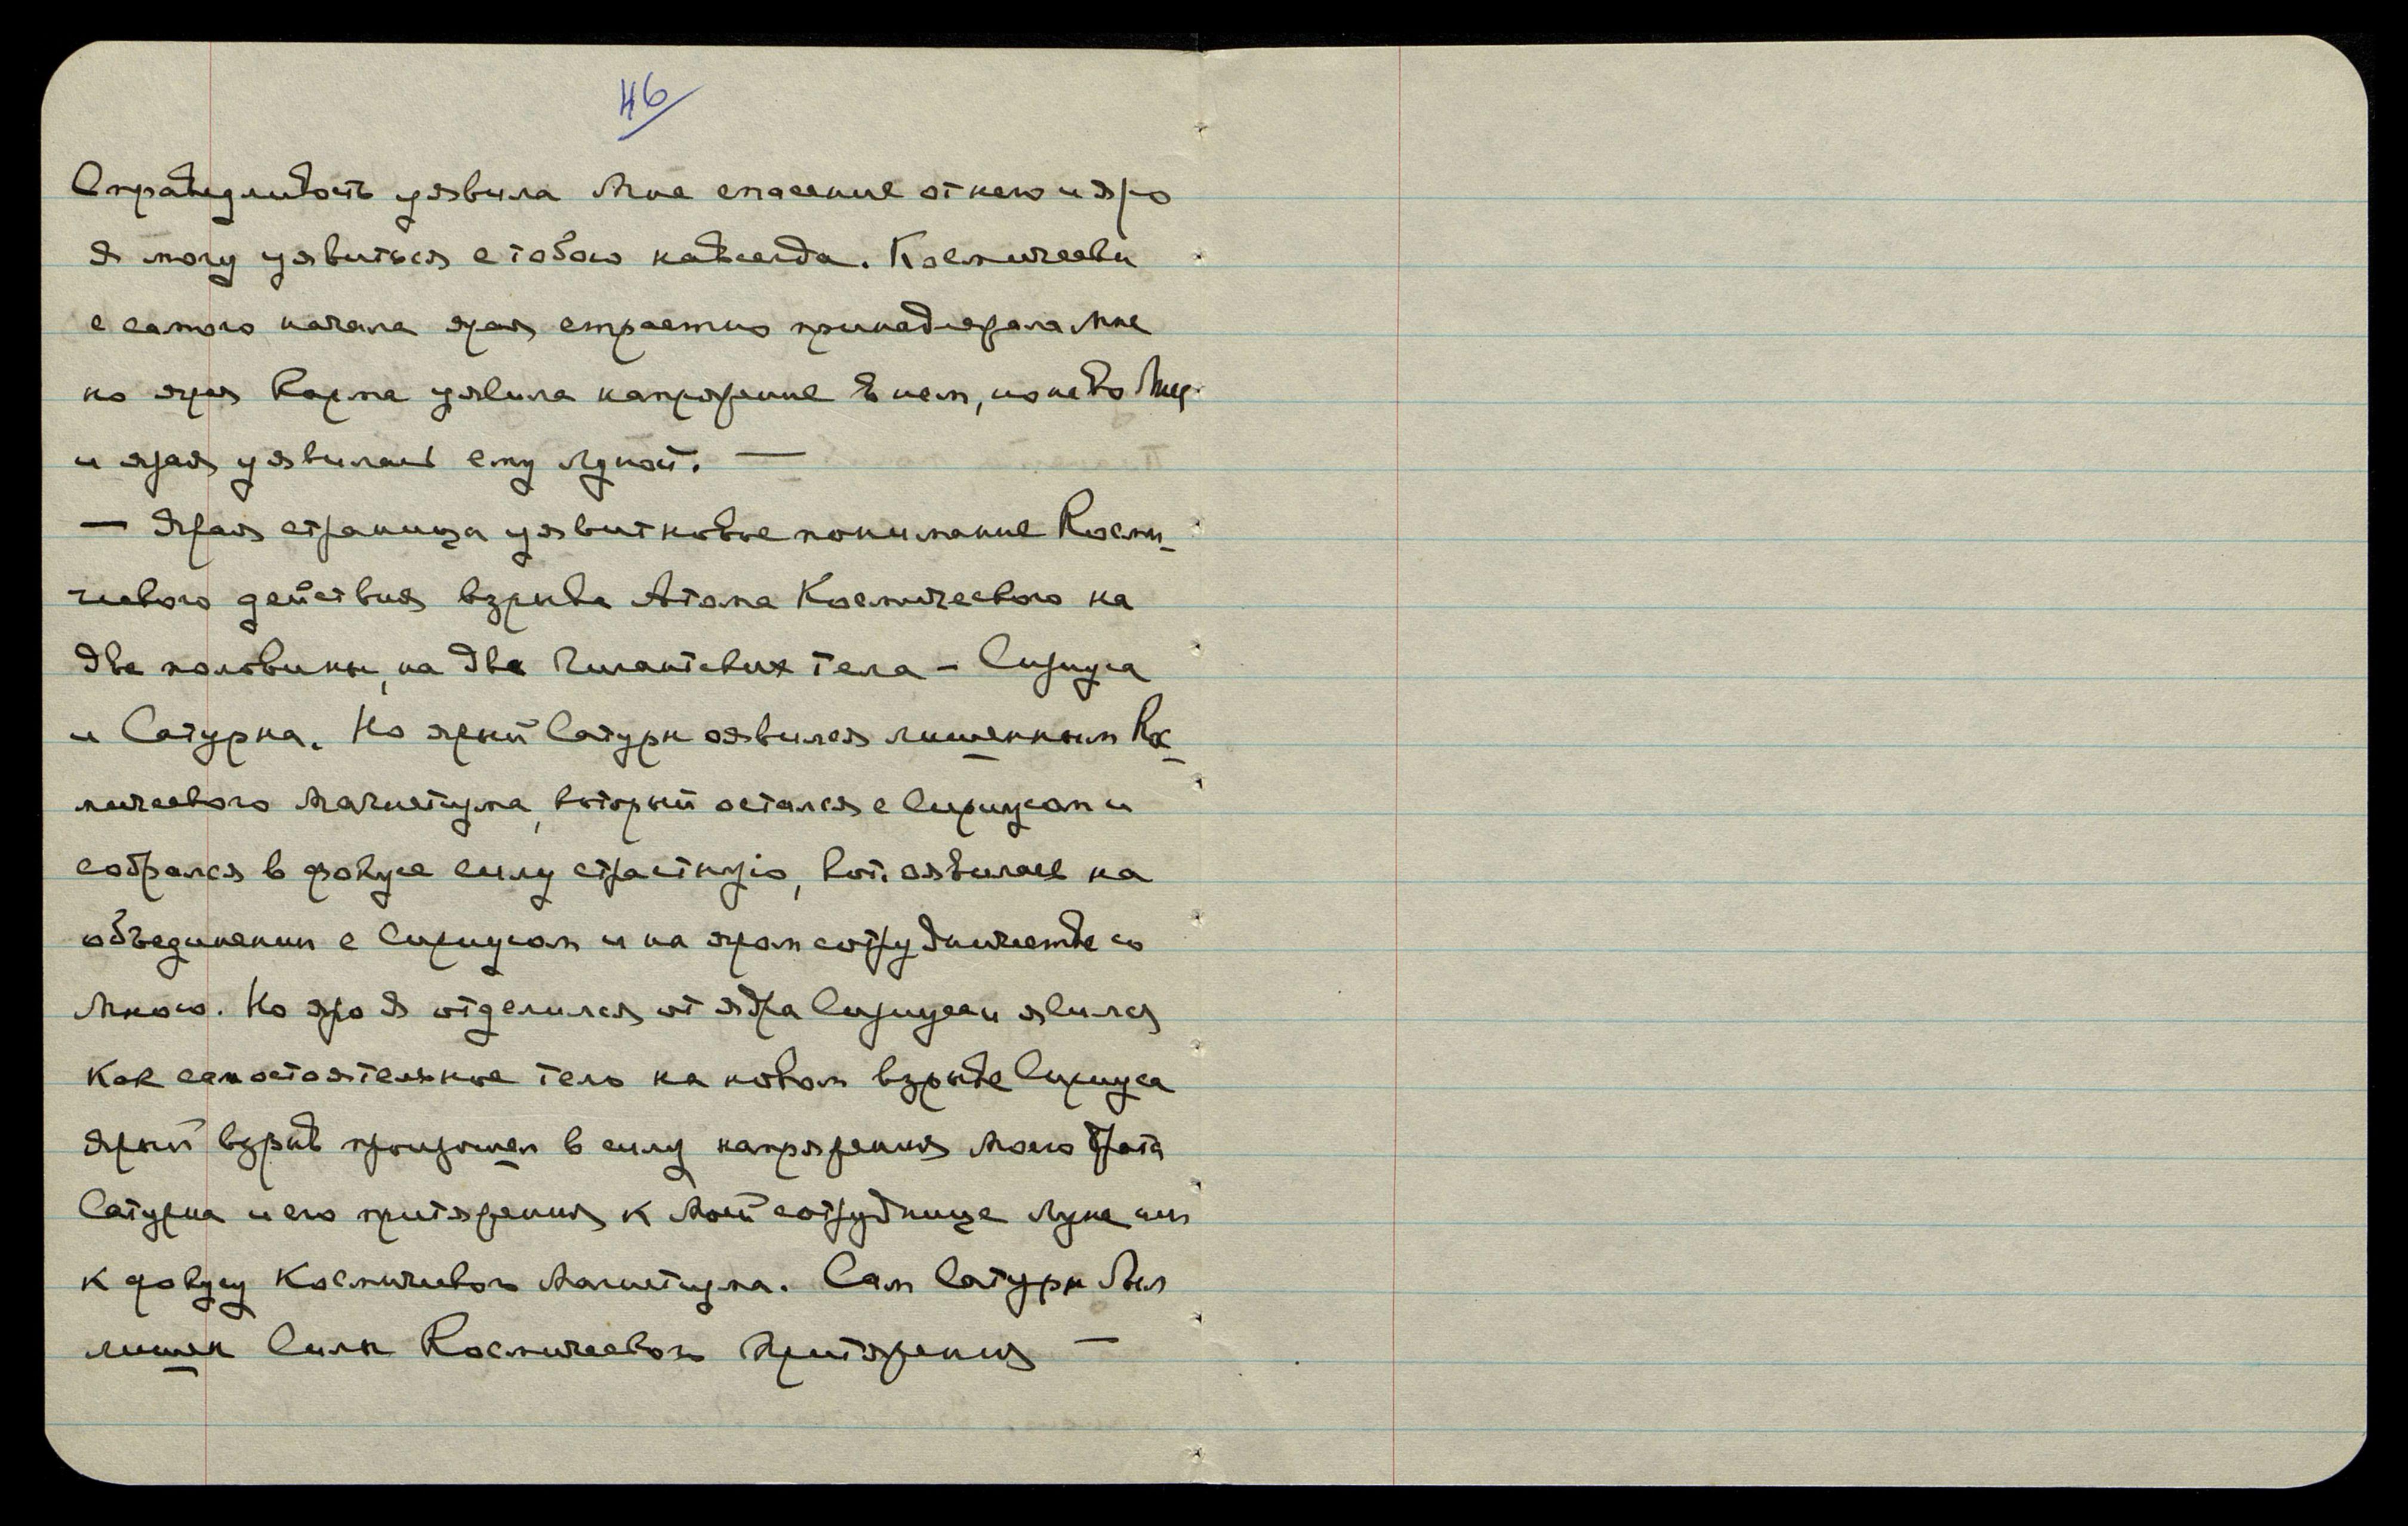 46
Справедливость уявила Мне спасение от него и яро
Я могу уявиться с тобою навсегда. Космически
с самого начала ярая страстно принадлежала Мне
но ярая Карма уявила напряжение в нем, но не во Мне
и ярая уявилась ему Луной. —
— Ярая страница уявит новое понимание Косми-
ческого действия взрыва Атома Космического на
две половины, на два Гигантских тела – Сириуса
и Сатурна. Но ярый Сатурн оявился лишенным Кос-
мического Магнетизма, который остался с Сириусом и
собрался в фокусе силу страстную, кот. оявилась на
объединении с Сириусом и на яром сотрудничестве со
Мною. Но яро Я отделился от ядра Сириуса и явился
как самостоятельное тело на новом взрыве Сириуса
Ярый взрыв произошел в силу напряжения Моего Брата
Сатурна и его притяжения к Моей сотруднице Луне или
к фокусу Космического Магнетизма. Сам Сатурн был
лишен Силы Космического Притяжения —